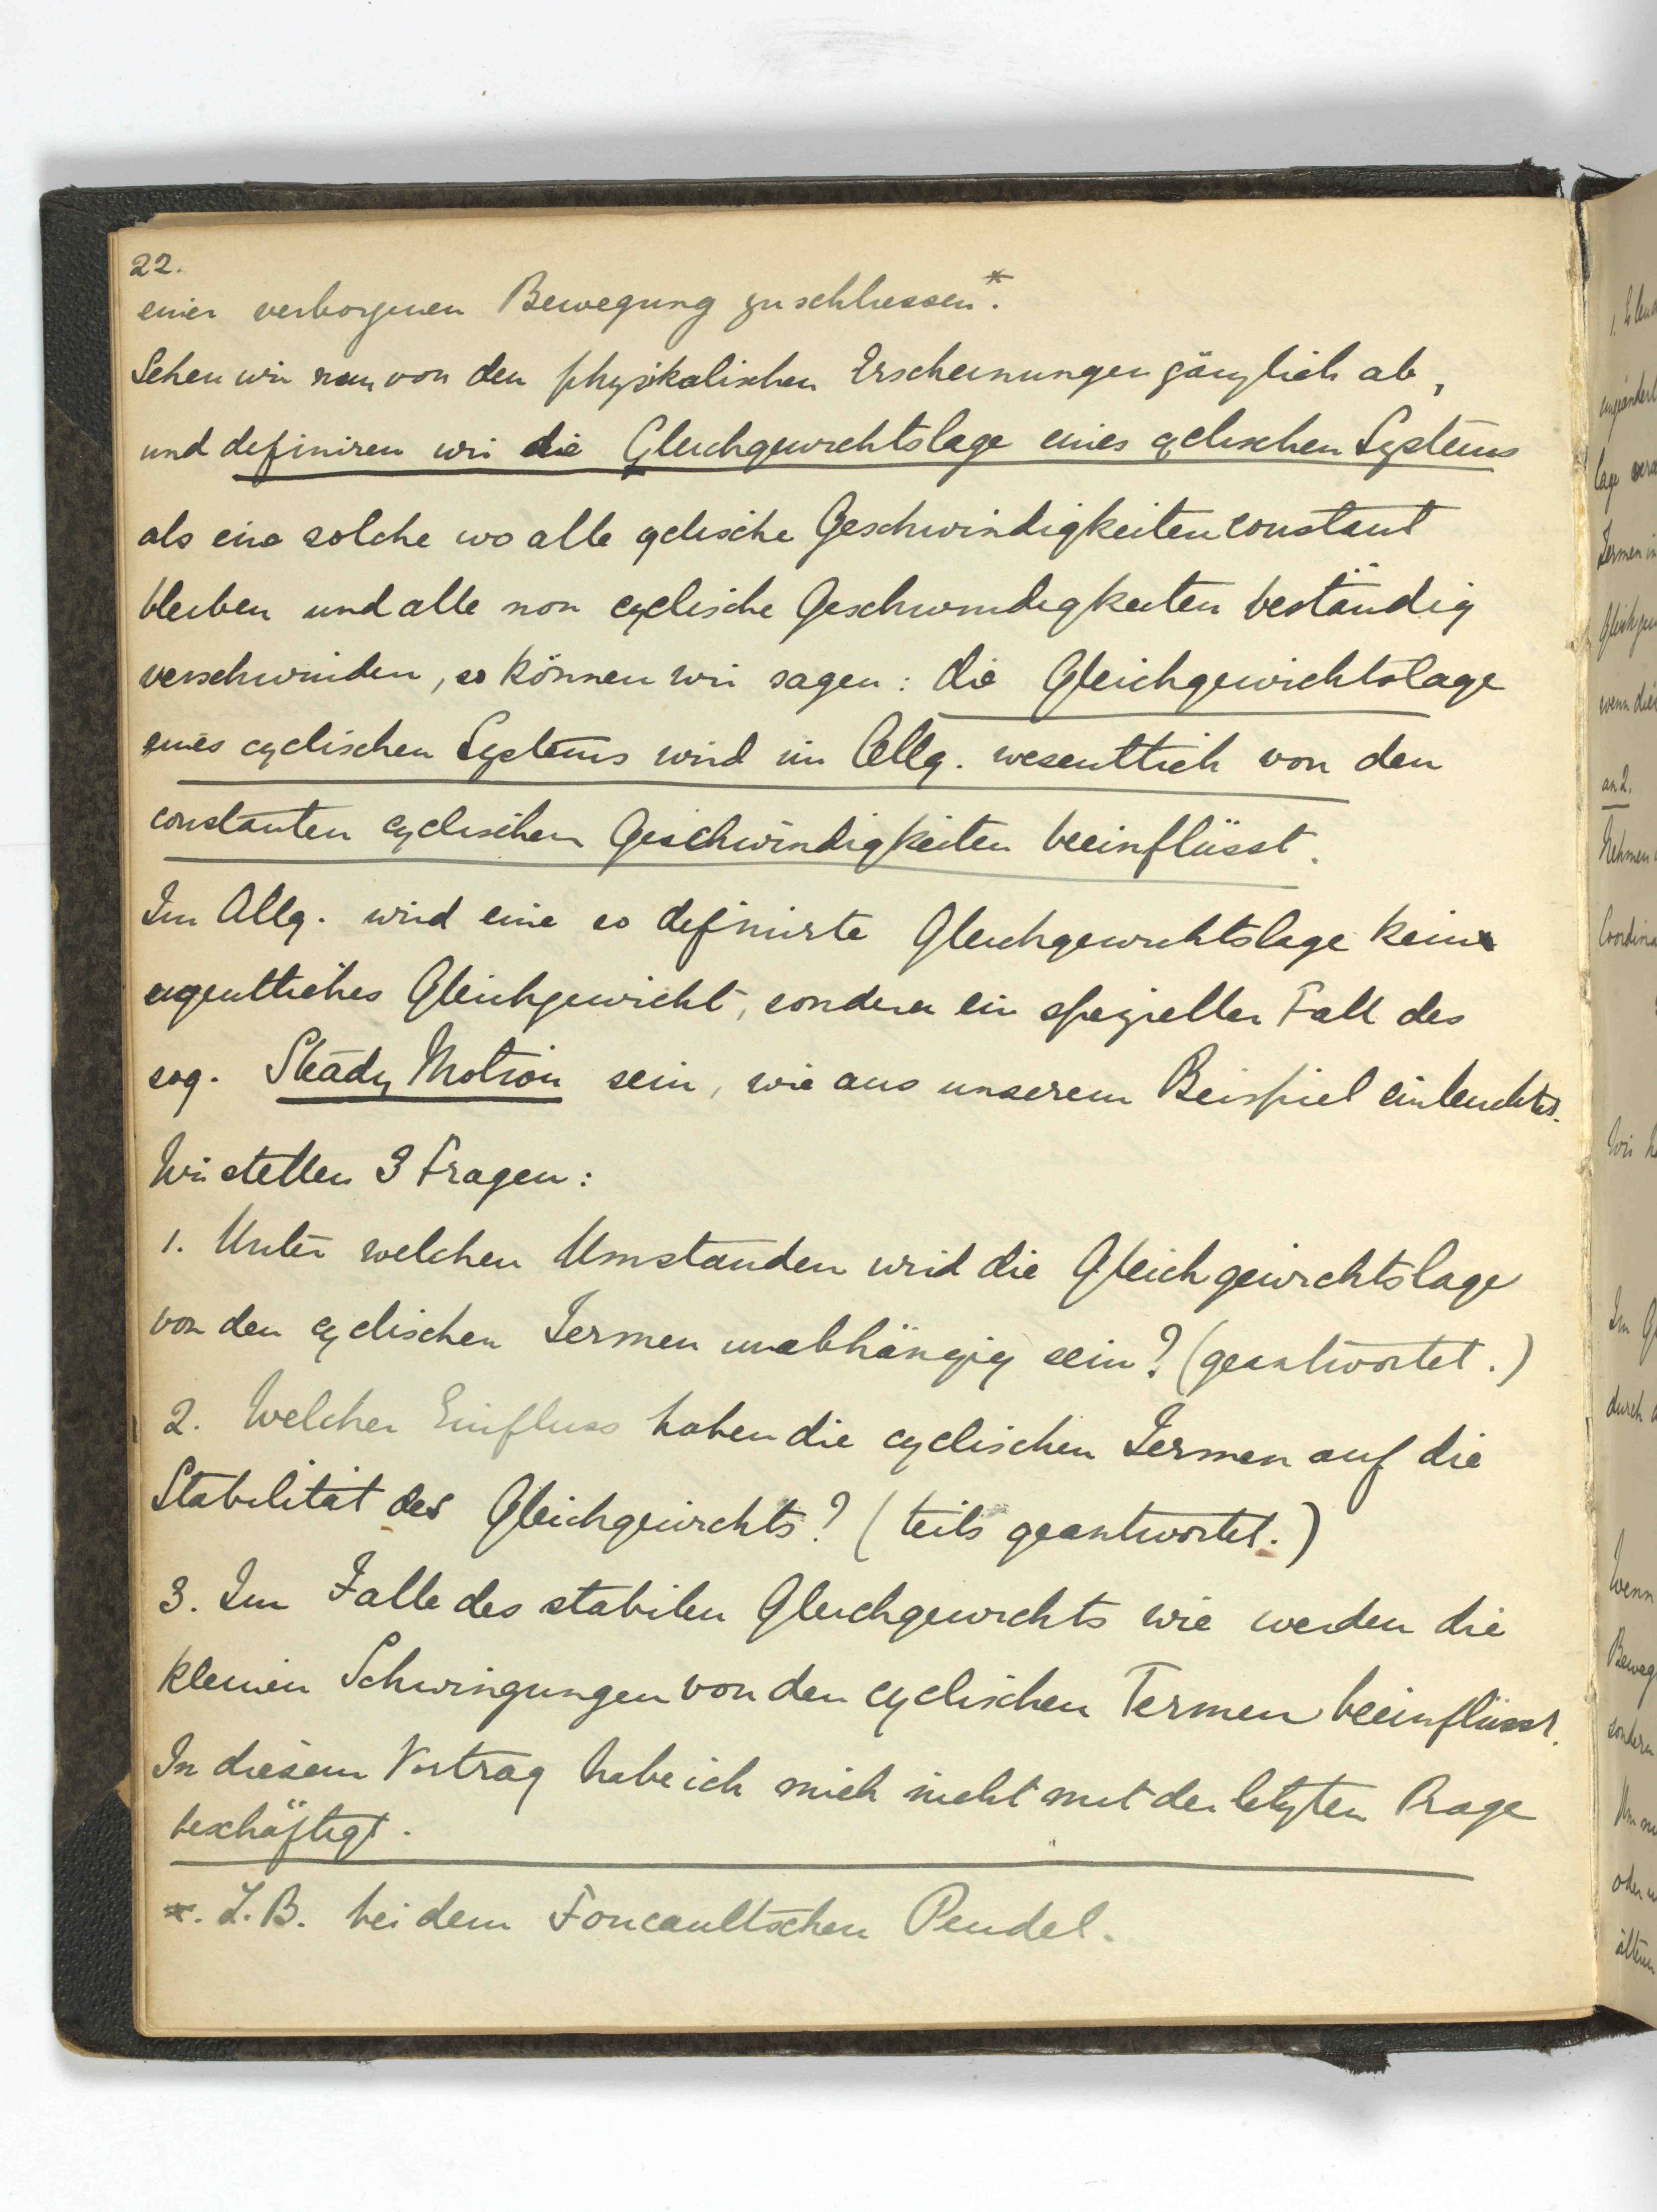 22.
einer verborgenen Bewegung zu schliessen*.
Sehen wir nun von den physikalischen Erscheinungen gänzlich ab,
und definiren wir die Gleichgewichtslage eines cyclischen Systems
als eine solche wo alle cyclische Geschwindigkeiten constant
bleiben und alle non cyclische Geschwindigkeiten beständig
verschwinden, so können wir sagen: die Gleichgewichtslage
eines cyclischen Systems wird im Allg. wesentlich von den
constanten cyclischen Geschwindigkeiten beeinflüsst.
Im Allg. wird eine so definirte Gleichgewichtslage kein
eigentliches Gleichgewicht, sondern ein spezieller Fall des
sog. Steady Motion sein, wie aus unserem Beispiel einleuchtet.
Wir stellen 3 Fragen:
1. Unter welchen Umständen wird die Gleichgewichtslage
von den cyclischen Termen unabhängig sein? (geantwortet.)
2. Welchen Einfluss haben die cyclischen Termen auf die
Stabilität des Gleichgewichts? (teils geantwortet.)
3. Im Falle des stabilen Gleichgewichts wie werden die
kleinen Schwingungen von den cyclischen Termen beeinflüsst.
In diesem Vortrag habe ich mich nicht mit der letzten Frage
beschäftigt.
*. Z.B. bei dem Foucaultschen Pendel.
an 2.
Nehmen
durch
Wenn